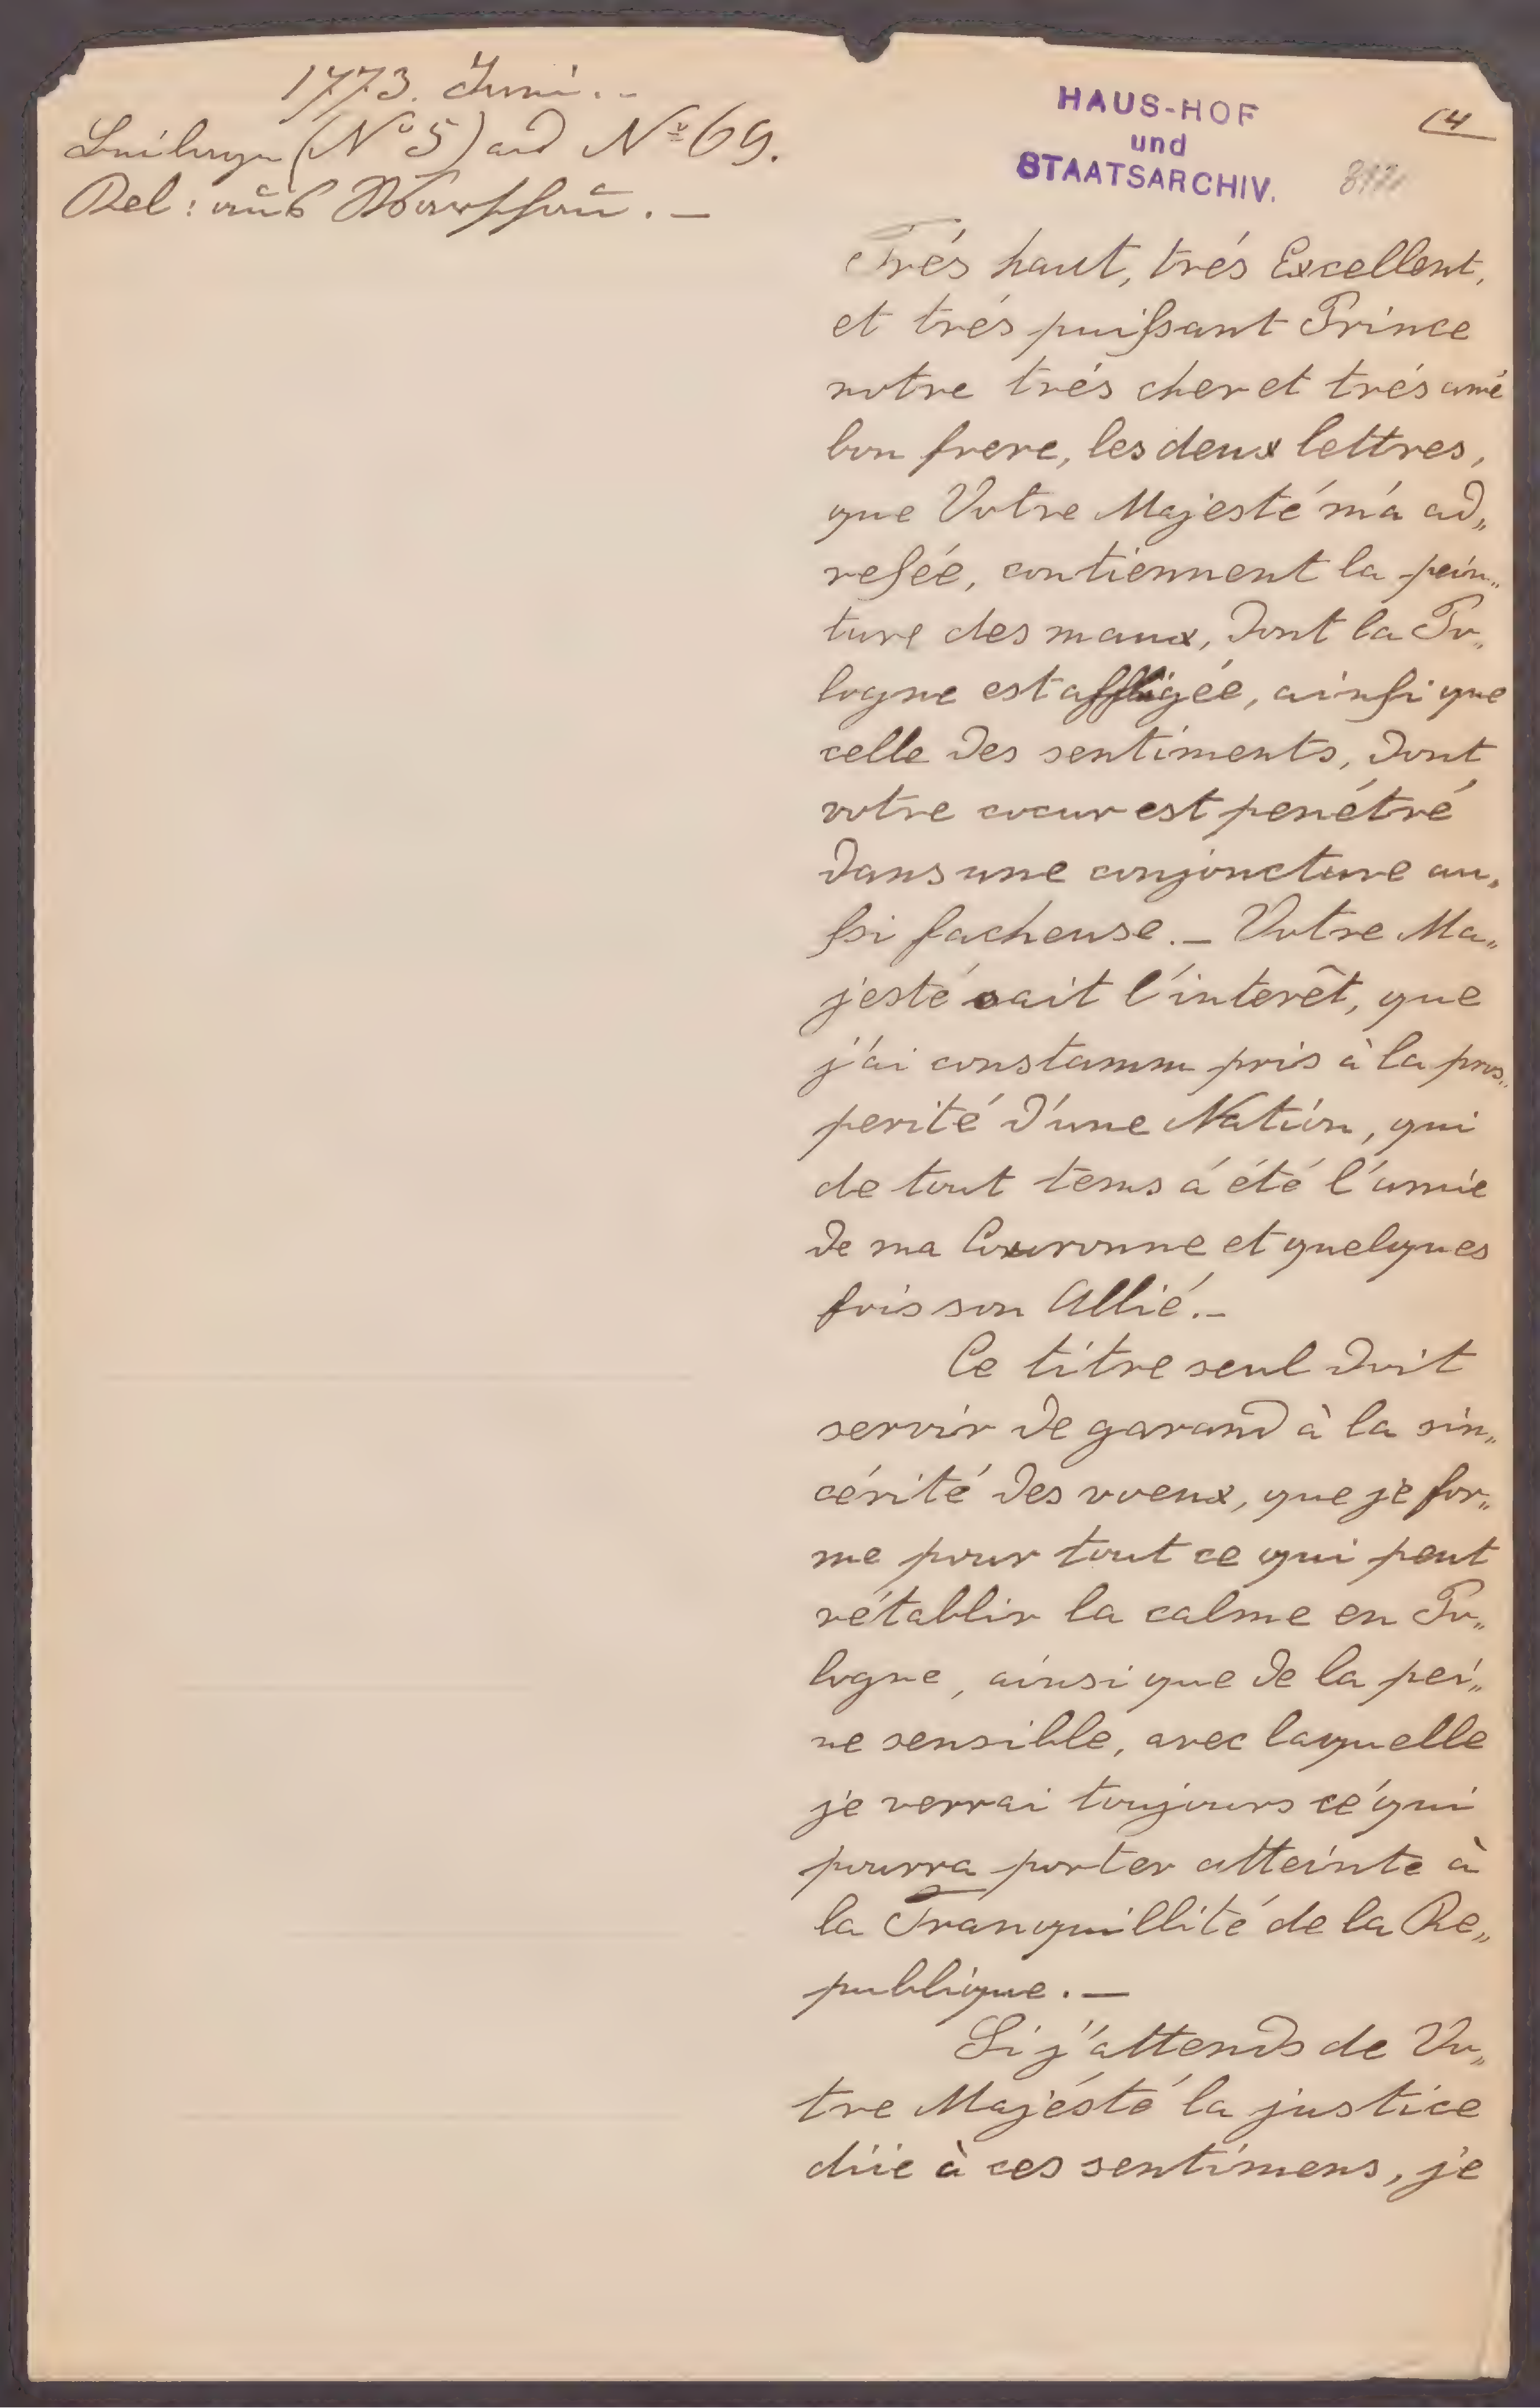 1773. Juni. -
Beilage (Nº 5) ad Nº 69.
Rel: aus Warschau. -
HAUS-HOF
und
STAATSARCHIV.
14
Trés haut, trés Excellent,
et trés puißant Prince
notre trés cher et trés amé
bon frere, les deux lettres,
que Votre Majesté m'a ad„
reßée, contiennent la pein„
ture des maux, dont la Po„
logne est affligée, ainſi que
celle des sentiments, dont
votre coeur est penétré
dans une conjoncture au„
ßi facheuse. - Votre Ma„
jesté sait l'interêt, que
j'ai constamm pris à la pros„
perité d'une Nation, qui
de tout tems á été l'amie
de ma Couronne et quelques
fois son Allié. -
Ce titre seul doit
servir de garand à la sin„
cérité des voeux, que je for„
me pour tout ce qui peut
rétablir la calme en Po„
logne, ainsi que de la pei„
ne sensible, avec laquelle
je verrai toujours ce qui
pourra porter atteinte à
la Tranquillité de la Re„
publique. -
Si j'attends de Vo„
tre Majésté la justice
düe à ces sentimens, je